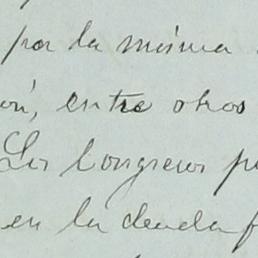 por la misma
ón, entre otros
Los Congresos p
en la deuda f